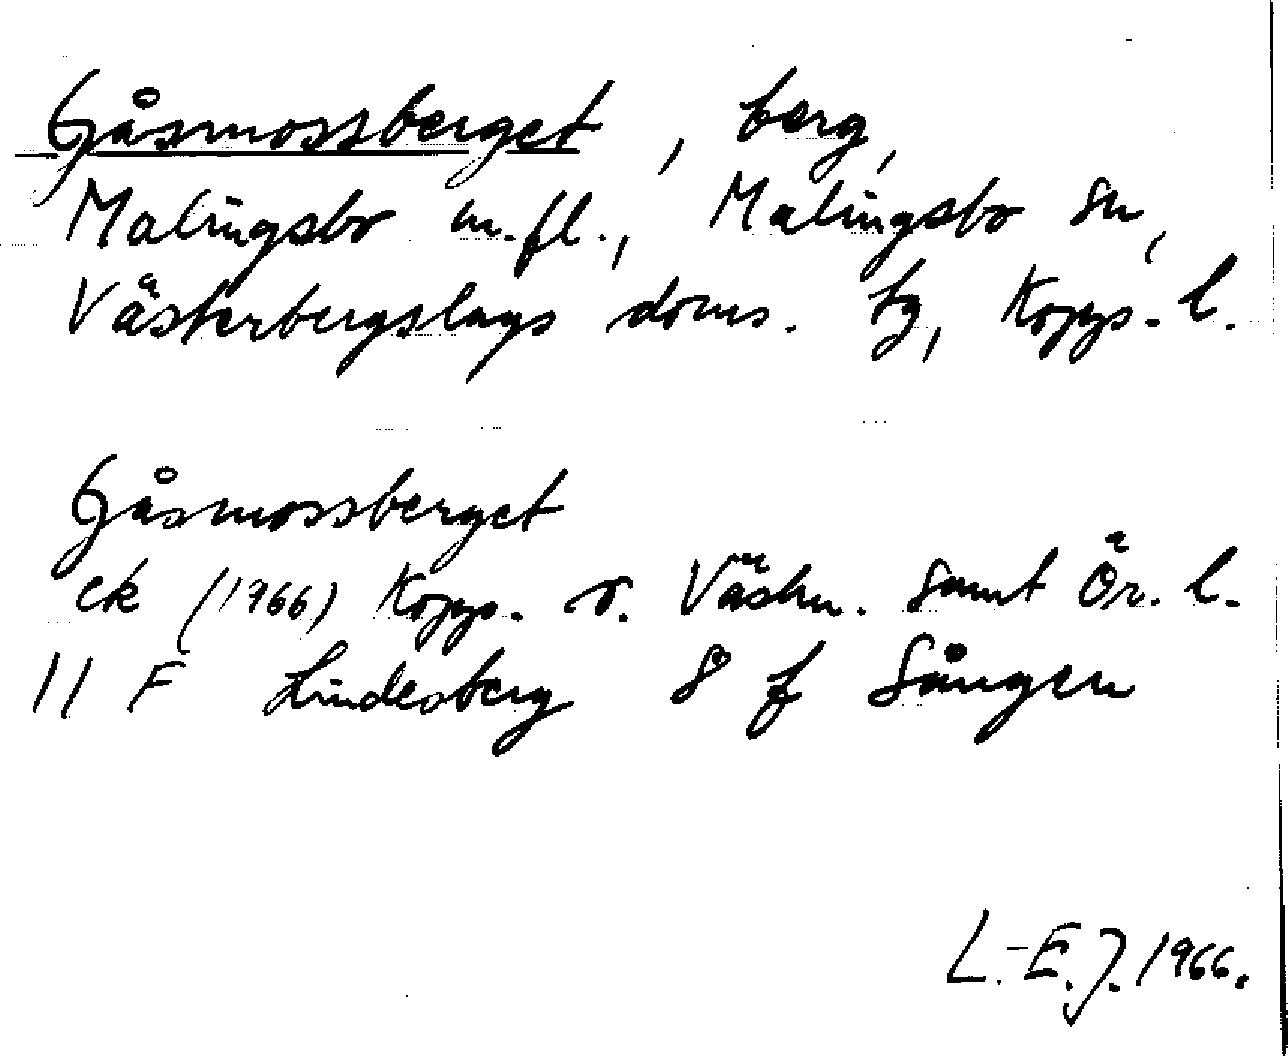 Gåsmossberget, berg,
Malingsbo m.fl., Malingsbo sn,
Västerbergslags doms. tg, Kopps. l.
Gåsmossberget
ek (1966) Kopps. o. Västm. samt Ör. l.
11 F Lindesberg 8 f Sången
L.-E.J. 1966.